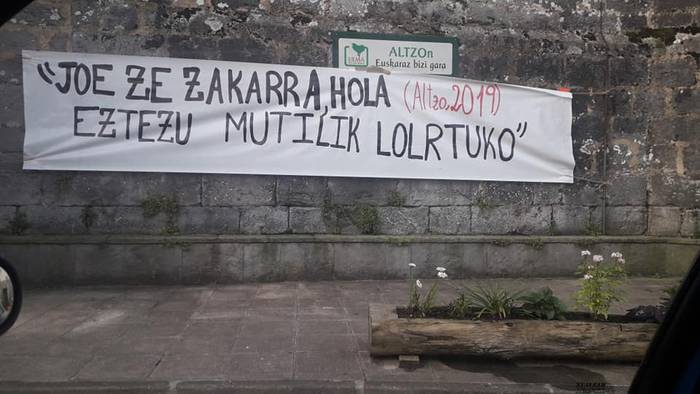 UEMA
ALTZOn
Euskaraz bizi gara
"JOE ZE ZAKARRA, HOLA (Altzo, 2019)
EZTEZU MUTILIK LOLRTUKO"